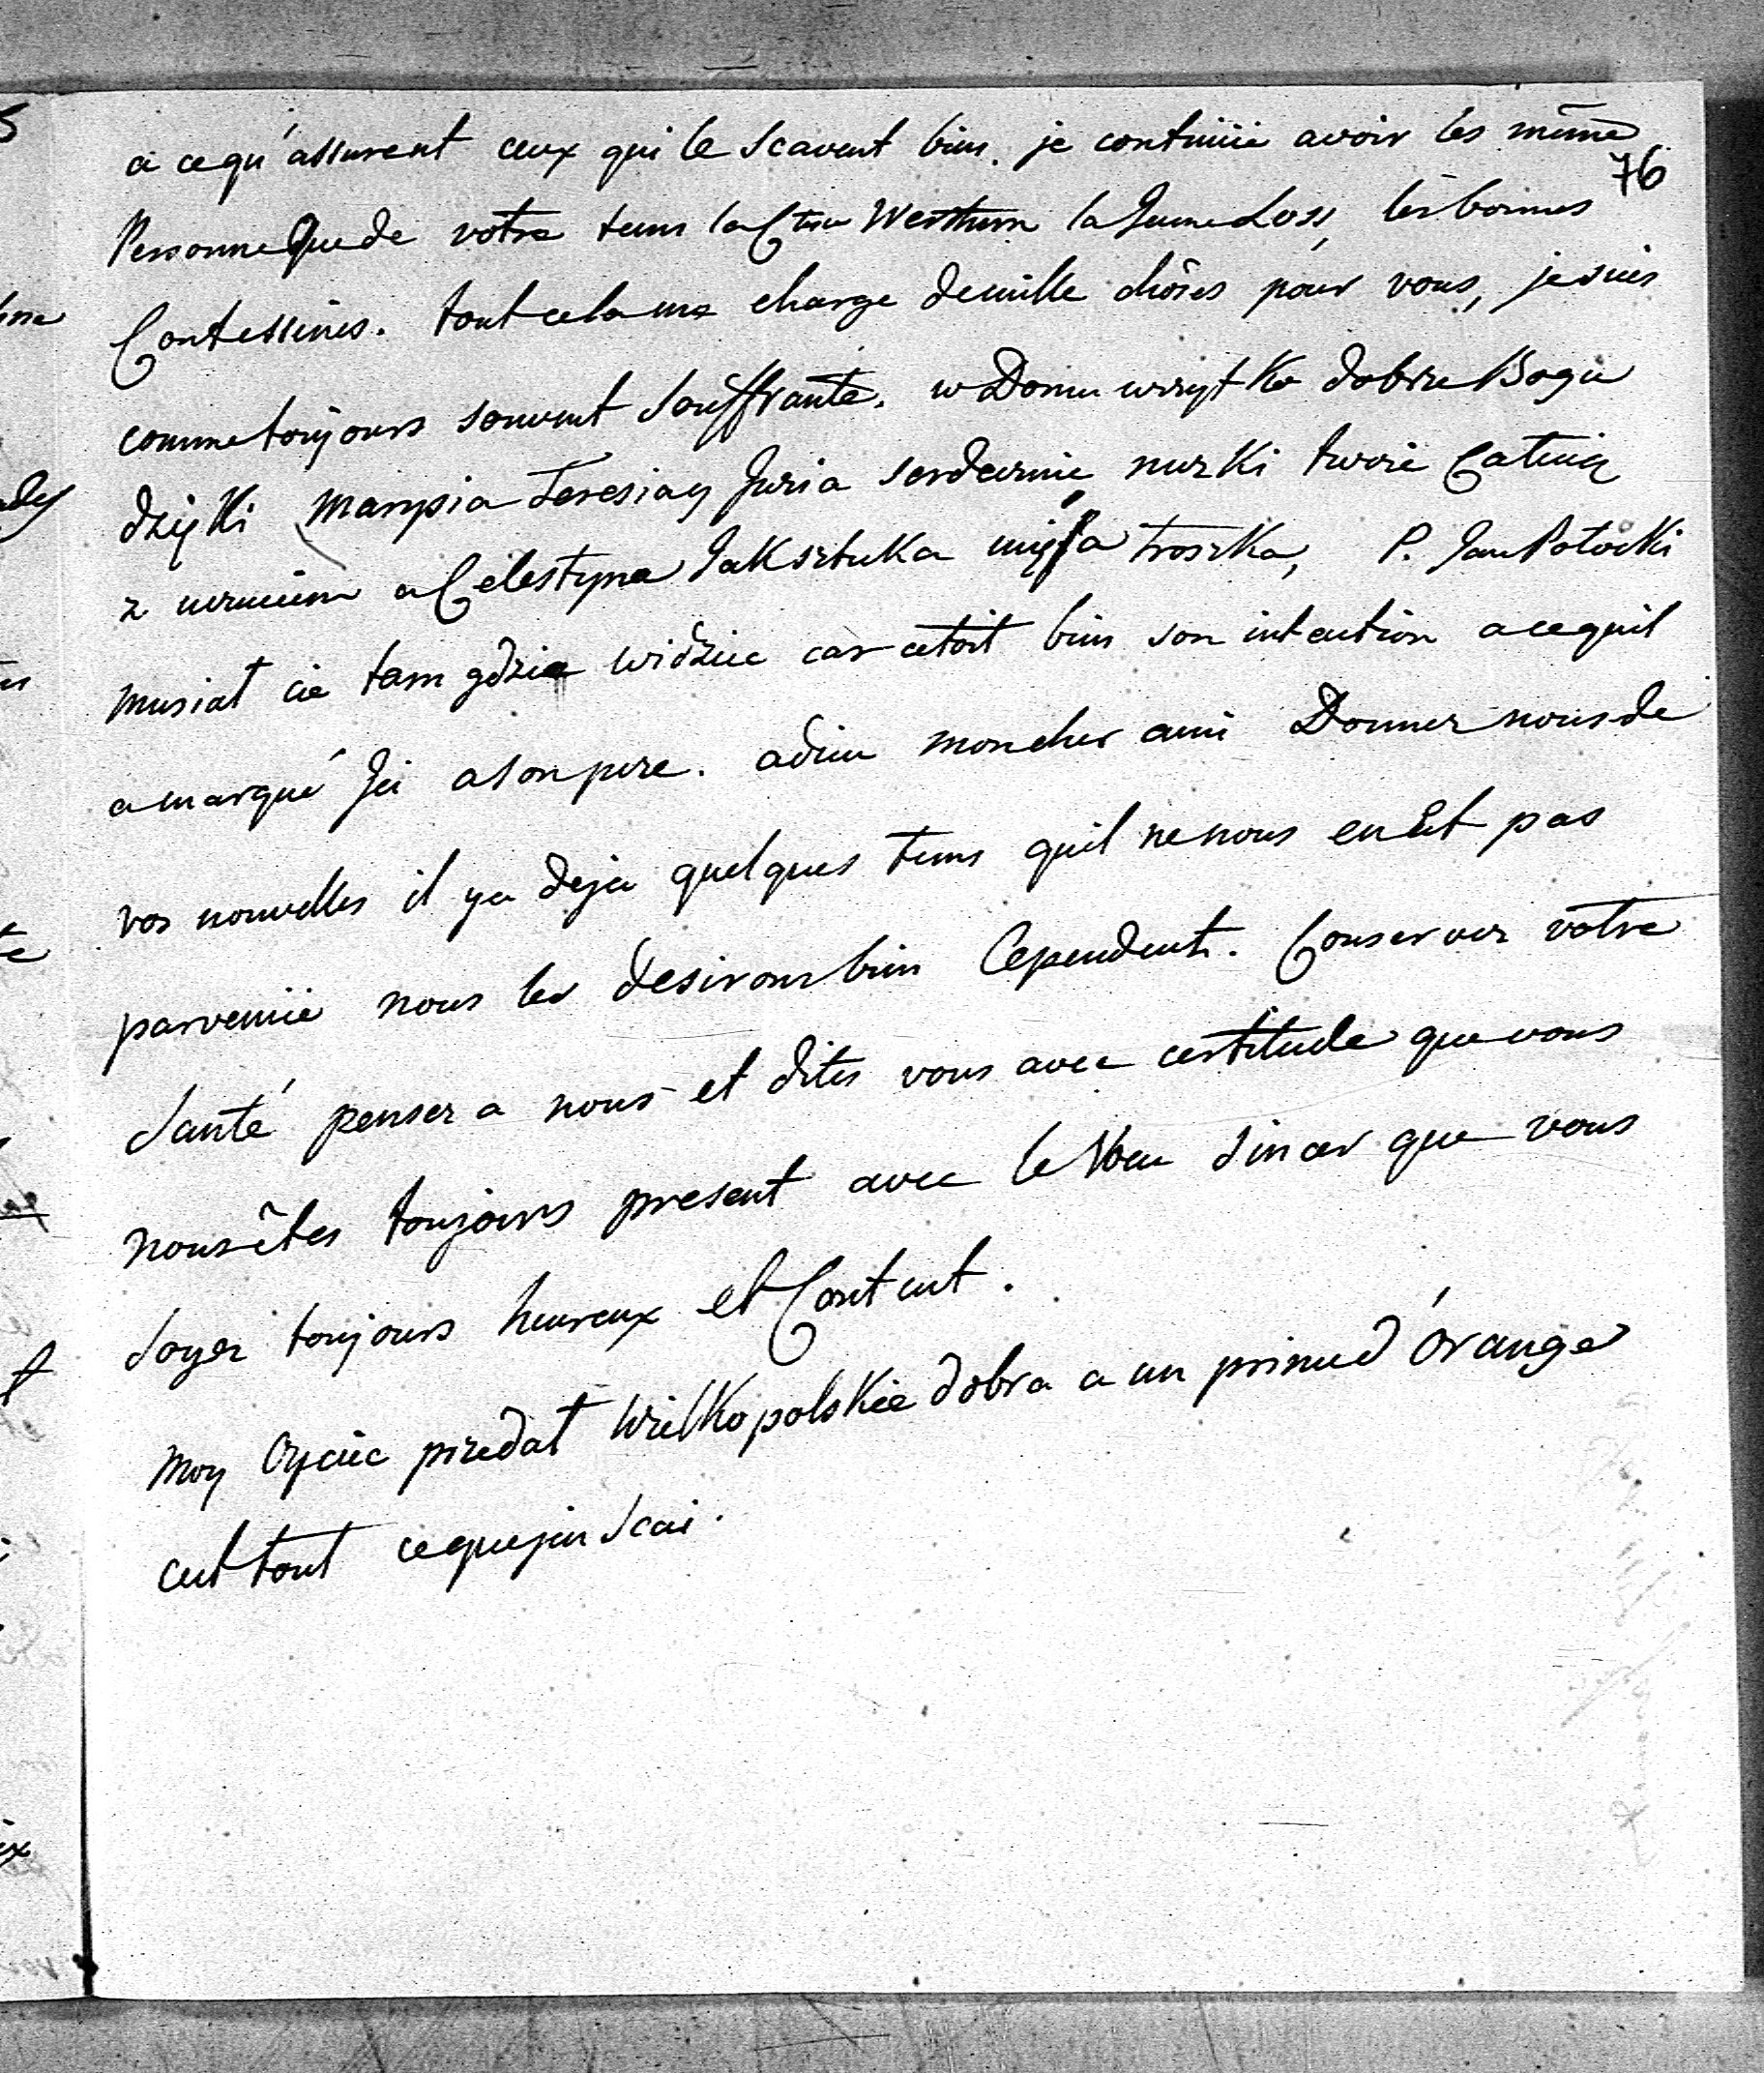 a ce qu'assurent ceux qui le scavent bien. je continüe avoir les même
76
Personne que de votre tems la Ctsse Werthern la Jeune Loss, les bonnes
Contessines. tout cela me charge de mille chôses pour vous, je suis
comme toujours souvent souffrante. w Domu wszytko dobrze Bogu
dzięki Marysia Teresia y Juzia serdecznie nuzki twoie Całuią
z uczuciem a Celestyna Jak sztuka mięsa troszka, P. Jan Potocki
musiał cie tam gdzie widziec car cetoit bien son intention a ce quil
a marqué Ici a son pere. adieu mon cher ami Donnez nous de
vos nouvelles il y a deja quelques tems quil ne nous en est pas
parvenüe nous les desirons bien Cependent. Conservez votre
Santé penser a nous et dites vous avec certitude que vous
nous êtes toujours present avec le Voeu sincer que vous
soyez toujours heureux et Content.
Moy Oyciec przedał Wielkopolskie dobra a un prince d'Orange
cest tout ce que jen scai.